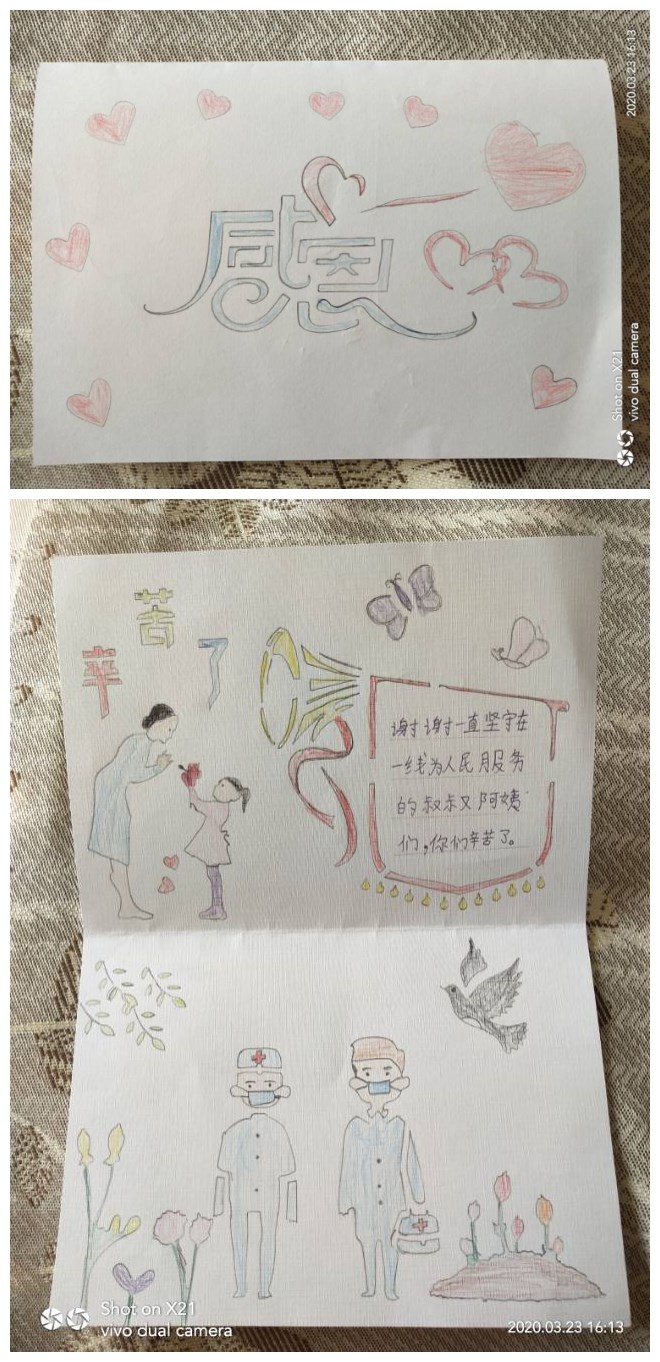 2020.03.23 16:13
感恩
Shot on X21
vivo dual camera
辛苦了
谢谢一直坚守在
一线为人民服务
的叔叔阿姨
们,你们辛苦了。
Shot on X21
vivo dual camera
2020.03.23 16:13